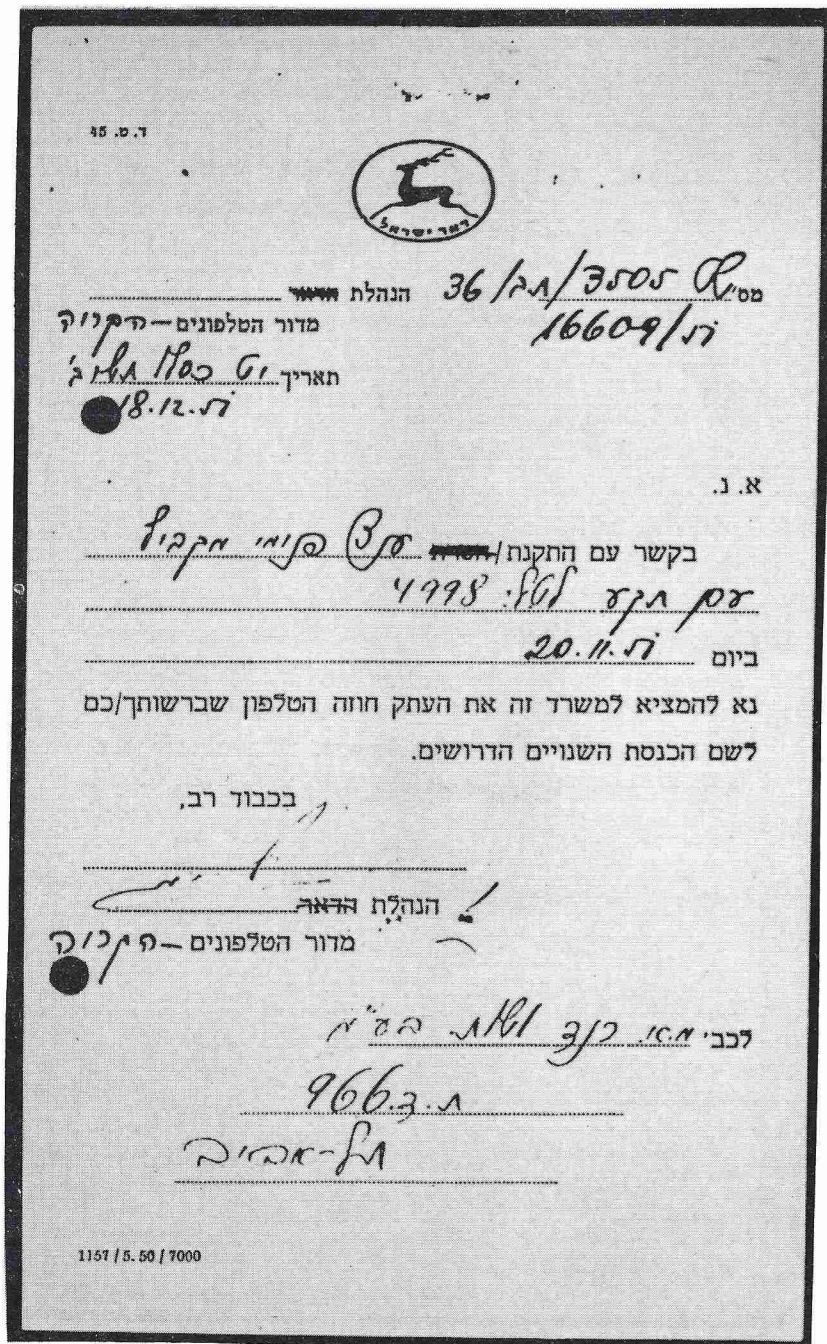 ד. ט. 45
דאר ישראל
מס' 3505/תב/36
16609/51
הנהלת הדואר
מדור הטלפונים – הקריה
תאריך יט כסלו תשי"ב
18.12.51
א. נ.
בקשר עם התקנת/ פנימי מקביל
עם תקע לטל. 4998
ביום 20.11.51
נא להמציא למשרד זה את העתק חוזה הטלפון שברשותך/כם
לשם הכנסת השנויים הדרושים.
בכבוד רב,
הנהלת הדאר
מדור הטלפונים – הקריה
לכב' מ.א. רנד ושות. בע"מ
ת.ד. 966
תל-אביב
1157 / 5.50 / 7000